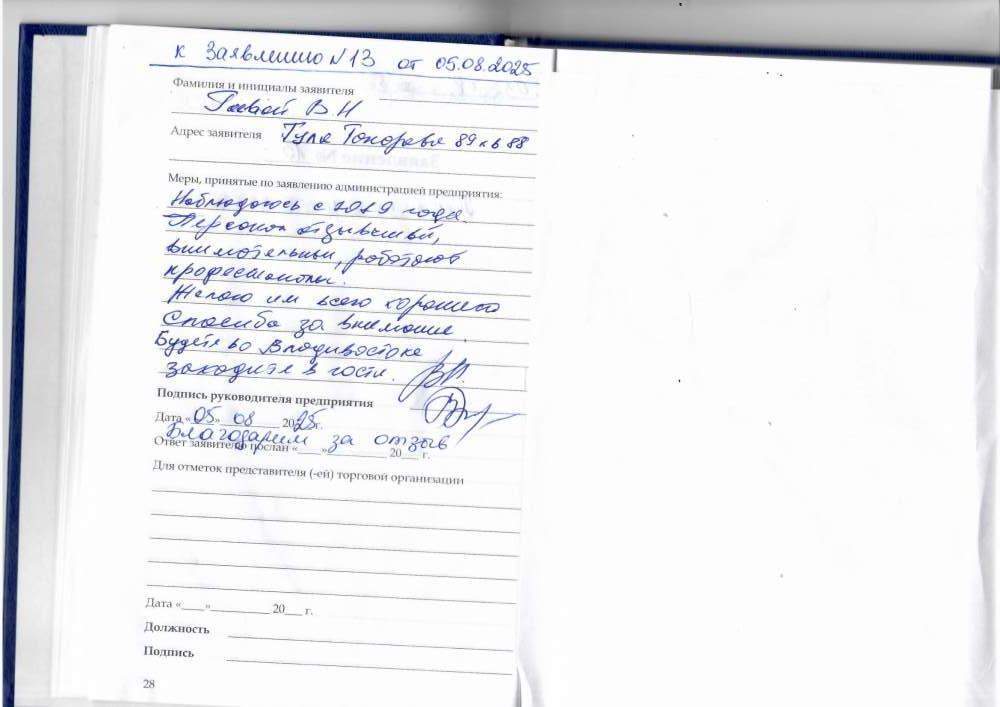 к Заявлению N 13 от 05.08.2025
Фамилия и инициалы заявителя
В Н
Адрес заявителя Тула 89 кв 88
Меры, принятые по заявлению администрацией предприятия:
Наблюдаюсь с 2019 года.
Персонал отзывчивый,
внимательный, работают
профессионалы.
Желаю им всего хорошего
Спасибо за внимание
Будете во Владивостоке
заходите в гости.
Подпись руководителя предприятия
Дата «05» 08 2025г.
Благодарим за отзыв
Ответ заявителю послан «___»__________ 20___ г.
Для отметок представителя (-ей) торговой организации
Дата «____»__________ 20___ г.
Должность
Подпись
28